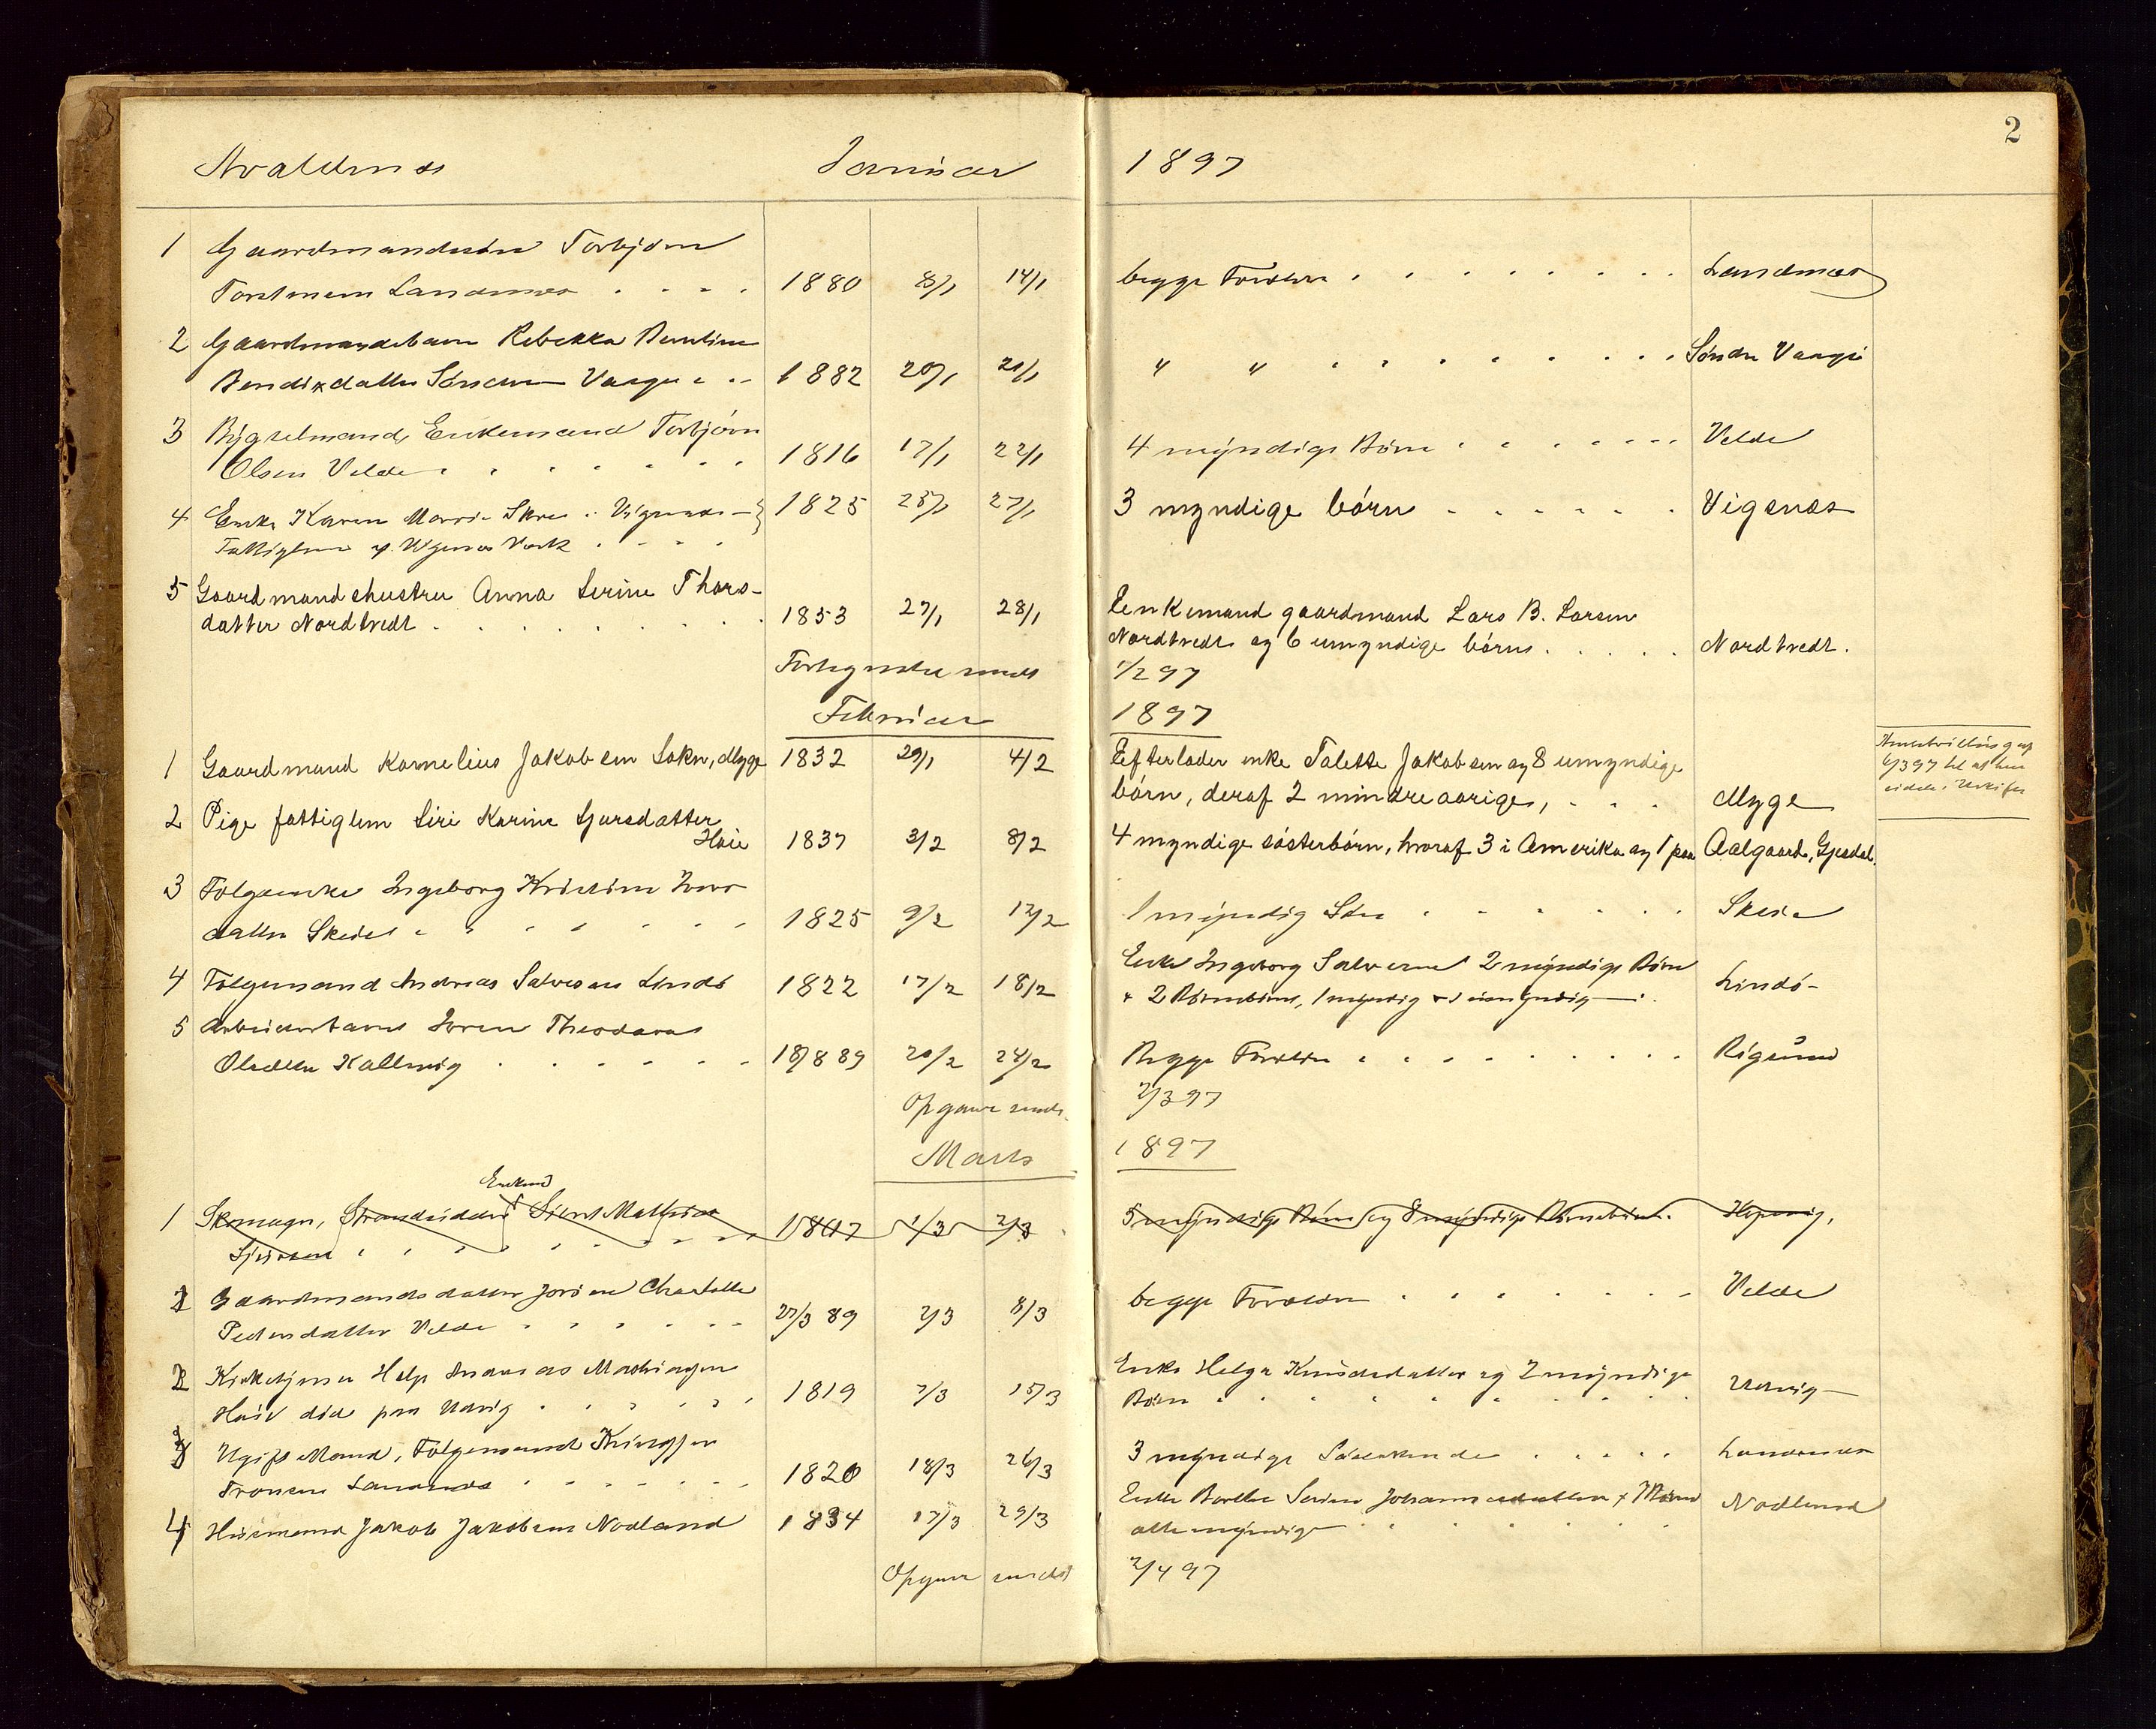 2
Avaldsnes Januar 1897
1 Gaardmandssøn Torbjørn
Torstensen Landsnes . . . . 1880 8/1 14/1 begge Forældre . . . . . . . . Landsnes
2 Gaardmandsbarn Rebekka Bentine
Bendixdatter Søndre Vaage . . . 1882 20/1 21/1 " " . . . . . . . . Søndre Vaage
3 Bygselmand, Enkemand Torbjørn
Olsen Velde . . . . . . . 1816 17/1 22/1 4 myndige Børn . . . . . . . Velde
4 Enke Karen Marie Vigsnes
Fattiglem af Vigsnes Værk . . . . 1825 25/1 27/1 3 myndige børn . . . . . . Vigsnæs
5 Gaardmandshustru Anna Serine Thors-
datter Nordtvedt . . . . . . . . 1853 27/1 28/1 Enkemand gaardmand Lars B. Larsen
Nordtvedt og 6 umyndige børn . . . . . Nordtvedt.
Fortegnelse sendt 1/2 97
Februar 1897
1 Gaardmand Kornelius Jakobsen Sokn, Myge 1832 29/1 4/2 Efterlader enke Talette Jakobsen og 8 umyndige
børn, deraf 2 mindreaarige, . . . Myge
Amtsbevilling af
6/3 97 til at hun
sidder i Uskifte
2 Pige fattiglem Siri Karine Gursdatter
Høie 1837 3/2 8/2 4 myndige søsterbørn, hvoraf 3 i Amerika og 1 paa Aalgaard, Gjesdal.
3 Følgeenke Ingeborg Kristine Ivers
datter Skeie . . . . . . . 1825 9/2 12/2 1 myndig Søn . . . . . . Skeie
4 Følgemand Andreas Salvesen Lindø 1822 17/2 18/2 Enke Ingeborg Salvesen 2 myndige Børn
+ 2 Børnebørn, 1 myndig + 1 umyndig — . Lindø -
5 Arbeiderbarn Theodora
Olsdatter Kallevig . . . . . . 18/8 89 20/2 24/2 Begge Forældre . . . . . . . . .
Opgave sendt. 2/3 97
Marts 1897
1 Skomager, Strandsidder, Enkemd
1817 1/3 2/3 5 myndige Børn og 8 myndige Børnebørn.
1 Gaardmandsdatter Charlotte
Pedersdatter Velde . . . . . . 27/3 89 2/3 8/3 begge Forældre . . . . . . . Velde
2 Kirketjener Helge Andreas
død paa Utvig . . . . . 1819 7/3 15/3 Enke Helga Knudsdatter og 2 myndige
Børn . . . . . . . . Utvig —
3 Ugift Mand, Følgemand
Landsnes . . . . . . 1820 18/3 26/3 3 myndige Søskende . . . . . Landsnes
4 Husmand Jakob Jakobsen Nodland 1834 17/3 29/3 Enke Berthe Serine Johannesdatter + 7 Børn
alle myndige . . . . . . Nodland
Opgave sendt 2/4 97